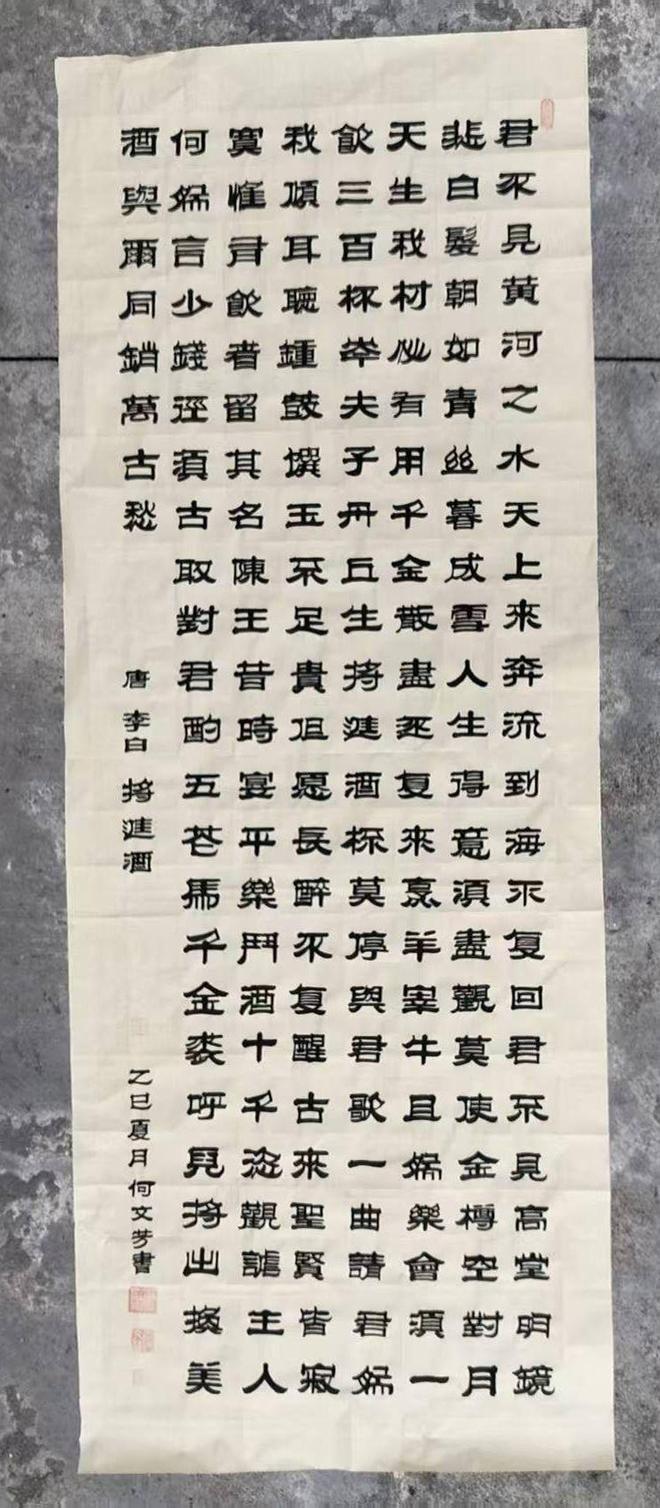 君不見黄河之水天上來奔流到海不复回君不見高堂明鏡
悲白髮朝如青絲暮成雪人生得意須盡觀莫使金樽空對月
天生我材必有用千金散盡还复來烹羊宰牛且為樂會須一
飲三百杯岑夫子丹丘生將進酒杯莫停與君歌一曲請君為
我傾耳聽鍾鼓饌玉不足貴但愿長醉不复醒古來聖賢皆寂
寞惟有飲者留其名陳王昔時宴平樂鬥酒十千恣觀謔主人
何為言少錢徑須古取對君酌五花馬千金裘呼兒將出換美
酒與爾同銷萬古愁 唐 李白 將進酒 乙巳夏月何文芳書